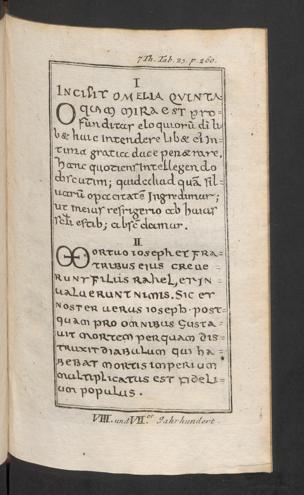 7Th. Tab. 23. p. 260.
I
INCIPIT OMELIA QUINTA
O quam mira est pro=
funditas eloquiorū dī lu
b& huic intendere lib& ei In
tima gratiae duce penetrare.
Hanc quotiens intellegendo
discutimus; quid aliud quam sil=
varū opacitatē Ingredimur;
ut in eius refrigerio ab huius
sc̄li estib; abscondamur.
II
Mortuo ioseph et fra=
tribus eius creue=
runt filii rahel, et in=
ualuerunt nimis. Sic et
noster uerus ioseph. post=
quam pro omnibus gusta=
uit mortem per quam dis=
truxit diabulum qui ha=
bebat mortis imperium
multiplicatus est fideli=
um populus.
VIII. und VII.er Jahrhundert.